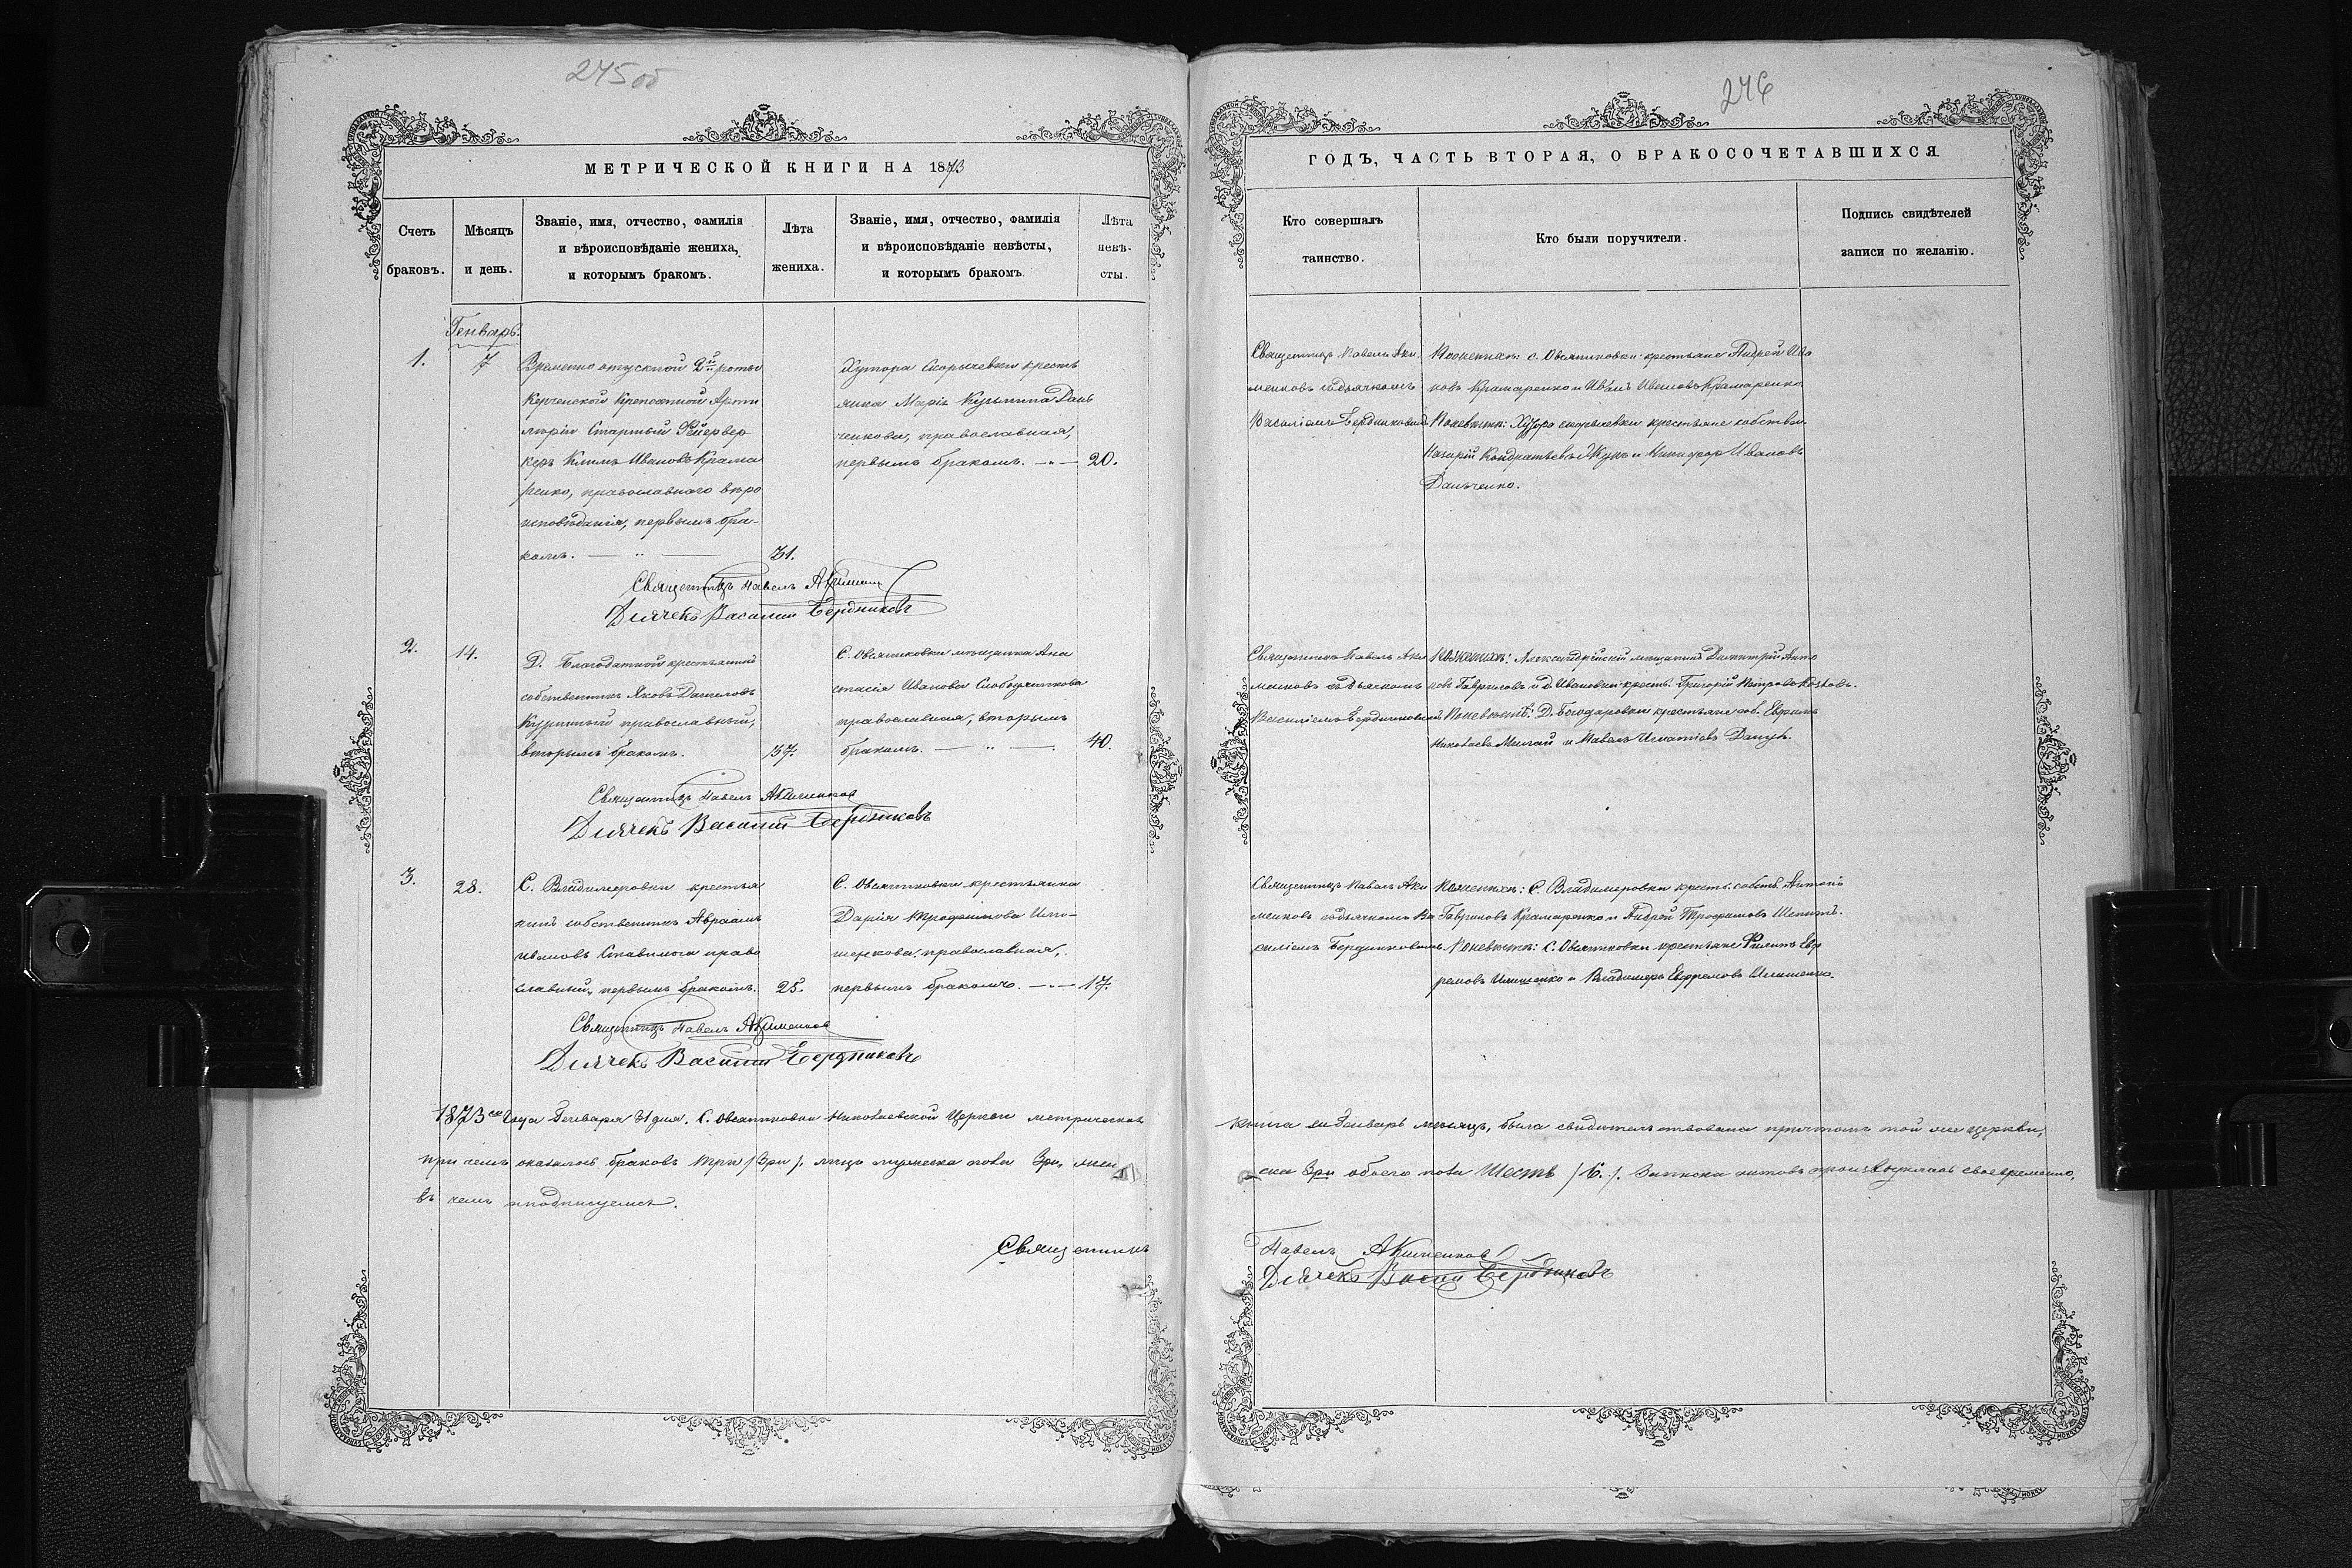 275об
МЕТРИЧЕСКОЙ КНИГИ НА 1873
Счетъ браковъ.
Мѣсяцъ и день.
Званіе, имя, отчество, фамилія
и вѣроисповѣданіе жениха,
и которымъ бракомъ.
Лѣта
жениха.
Званіе, имя, отчество, фамилія
и вѣроисповѣданіе невѣсты,
и которымъ бракомъ
Лѣта
невѣ-
сты.
Генварь.
1.
7
Временно отпускной 2й роты
Керченской Крепостной Арти
леріи Старшый Фейервер
керъ Климъ Ивановъ Крама
ренко, православнаго веро
исповѣданія, первымъ бра-
комъ.
31.
Хутора Скорычевки кресть
янка Марія Кузьмина Дань
ченкова, православная,
первымъ бракомъ.
20.
Священникъ Павелъ Акименковъ
Дьячекъ Василий Бердниковъ
2.
14.
Д. Благодатной крестьянинъ
собственникъ Яковъ Даниловъ
православный,
вторымъ бракомъ.
37.
С. Овсянниковки мещанка Ана
стасія Иванова
православная, вторымъ
бракомъ.
40.
Священникъ Павелъ Акименковъ
Дьячекъ Василий Бердниковъ
3.
28.
С. Владимеровки крестья
нинъ собственникъ Авраамъ
Ивановъ право
славный, первымъ бракомъ.
25.
С. Овсянниковки крестьянка
Дарія Трофимова Или-
шенкова, православная,
первымъ бракомъ.
17.
Священникъ Павелъ Акименковъ
Дьячекъ Василий Бердниковъ
1873го Года Генваря 31 дня, С. Овсянниковки Николаевской Церкви метрическая
при чемъ оказалось браковъ три /3ри/. лицъ мужеска пола 3ри, жен
въ чемъ и подписуемся.
Священникъ
276
ГОДЪ, ЧАСТЬ ВТОРАЯ, О БРАКОСОЧЕТАВШИХСЯ
Кто совершалъ
таинство.
Кто были поручители.
Подпись свидѣтелей
записи по желанію.
Священникъ Павелъ Аки
менковъ съ дьячкомъ
Василіемъ Бердниковымъ
По женихѣ: с. Овсянниковки крестьяне Андрей Ива
новъ Крамаренко и Иванъ Ивановъ Крамаренко
По невѣстѣ: Хутора скорычевки крестьяне собствен.
Назарій Кондратьевъ Жукъ и Никифоръ Ивановъ
Данченко.
Священникъ Павелъ Аки
менковъ съ дьячкомъ
Василіемъ Бердниковымъ
По женихѣ: Александрійскій мещанинъ Димитрій Анто
новъ Гавриловъ и д. Ивановки крест. Григорій Петровъ Козловъ.
По невѣстѣ: Д. Богодаровки крестьяне соб. Ефимъ
Николаевъ и Павелъ Игнатіевъ
Священникъ Павелъ Аки
менковъ съ дьячкомъ Ва
силіемъ Бердниковымъ
По женихѣ: С. Владимеровки крест. собств. Антоній
Гавриловъ Крамаренко и Андрей Трофимовъ
По невѣстѣ: С. Овсянниковки крестьяне Филипъ Евф
ремовъ Илишенко и Владимеръ Евфремовъ Илишенко.
книга за Генварь месяцъ, была свидительствована причтомъ той же церкви,
ска 3ри обоего пола Шесть /6./. Записка актовъ производилась своевременно,
Павелъ Акименковъ
Дьячекъ Васили Бердниковъ